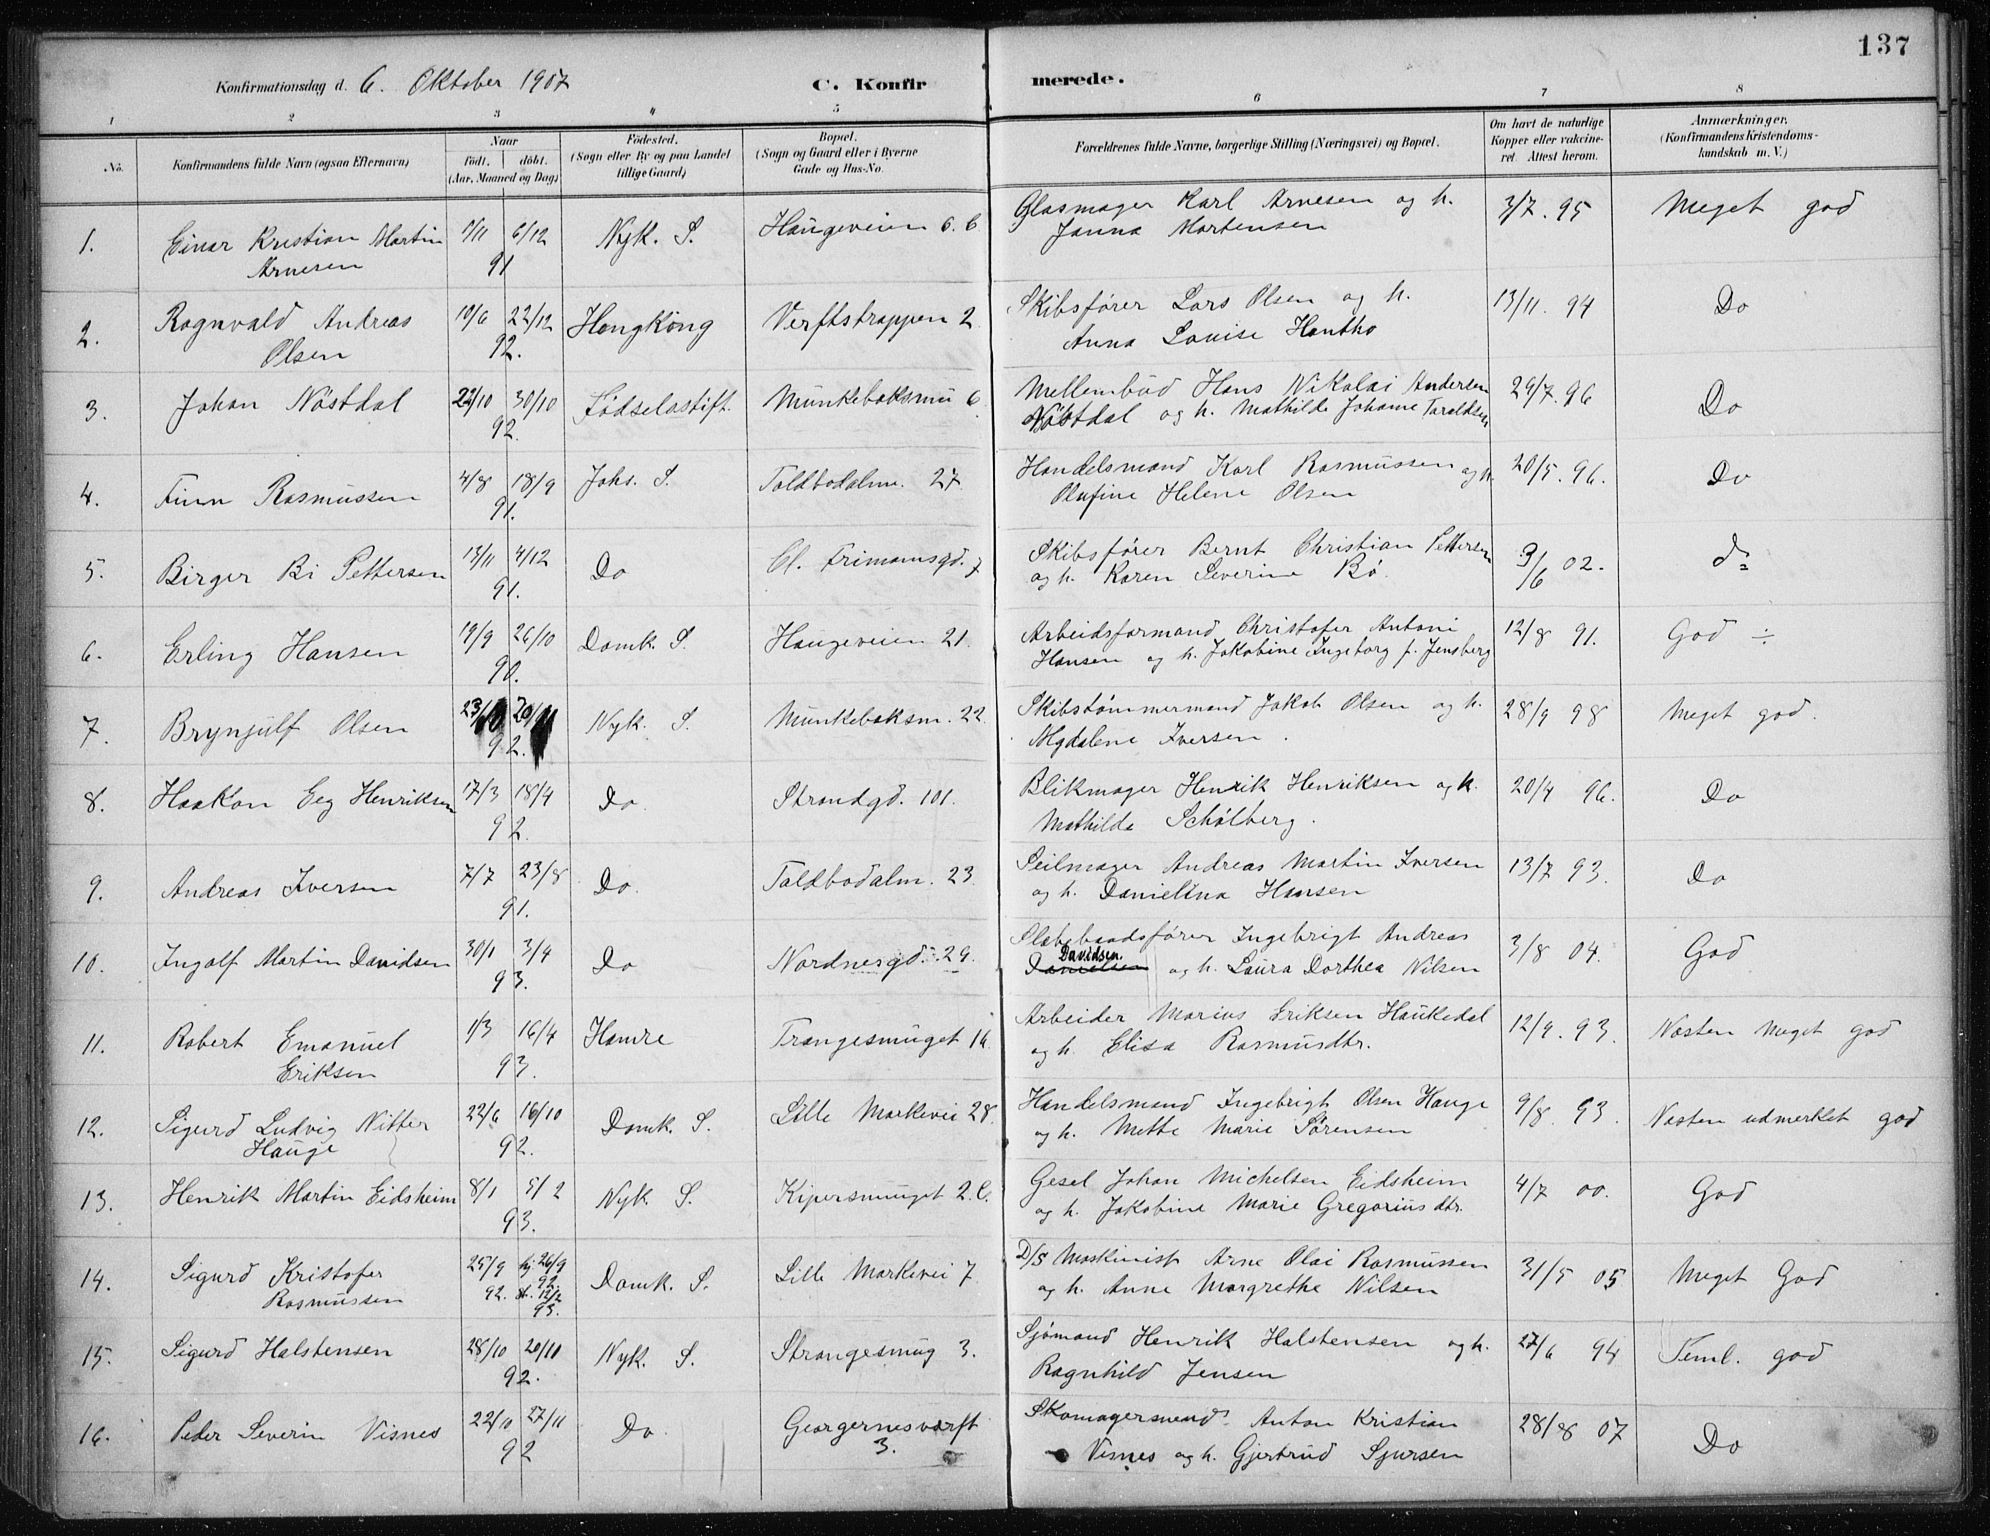 137
Konfirmationsdag d. 6. Oktober 1907
C. Konfirmerede.
1 2 3 " 5 6 7 8
No.
Konfirmandens fulde Navn (ogsaa Efternavn)
Naar
födt. döbt.
(Aar, Maaned og Dag)
Födested.
(Sogn eller By og paa Landet
tillige Gaard)
Bopæl.
(Sogn og Gaard eller i Byerne
Gade og Hus-No.
Forældrenes fulde Navne, borgerlige Stilling (Næringsvei) og Bopæl.
Om havt de naturlige
Kopper eller vakcine-
ret Attest herom.
Anmærkninger.
(Konfirmandens Kristendoms-
kundskab m. V.)
1. Einar Kristian Martin
Arnesen
1/11 6/12
91
Nyk. S.
Haugeveien 6. b
Glasmager Karl Arnesen og h.
Janna Mortensen
3/7. 95
Meget god
2. Ragnvald Andreas
Olsen
19/6 22/12
92.
HongKong
Verftstrappen 2
Skibsfører Lars Olsen og h.
Anna Louise Hantho
13/11. 94
Do
3. Johan Nöstdal
22/10 30/10
92.
Födselsstift.
Munkebaksmu 6
Mellembud Hans Nikolai Andersen
Nöstdal og h. Mathilde Johanne Taraldsen
29/7. 96
Do
4. Finn Rasmussen
4/8 18/9
91.
Johs. S.
Toldbodalm. 27
Handelsmand Karl Rasmussen og h.
Olufine Helene Olsen
20/5. 96.
Do
5. Birger Bi Pettersen
13/11 4/12
91.
Do
Cl. Frimannsgd. 7
Skibsfører Bernt Christian Pettersen
og h. Karen Severine Bö.
3/6 02.
do
6. Erling Hansen
19/9 26/10
90.
Domk. S.
Haugeveien 21.
Arbeidsformand Christofer Antoni
Hansen og h. Jakobine Ingeborg f. Jensberg
12/8 91.
God ÷
7. Brynjulf Olsen
23/10 20/11
92.
Nyk. S.
Munkebaksm. 22.
Skibstømmermand Jakob Olsen og h.
Magdalene Iversen.
28/9 98
Meget god.
8. Haakon Eeg Henriksen
17/3 18/4
92.
Do.
Strandgd. 101.
Blikmager Henrik Henriksen og h.
Mathilda Schölberg.
20/4 96.
Do
9. Andreas Iversen
7/7 23/8
91.
Do.
Toldbodalm. 23.
Seilmager Andreas Martin Iversen
og h. Danielina Hansen
13/7 93.
Do
10. Ingolf Martin Davidsen
30/1 3/4
93.
Do
Nordnesgd. 29.
Slæbebaadsfører Ingebrigt Andreas
Davidsen
Danielsen og h. Laura Dorthea Nilsen
3/8 04.
God
11. Robert Emanuel
Eriksen
1/3 16/4
93.
Hamre
Trangesmuget 16.
Arbeider Marius Eriksen Haukedal
og h. Elisa Rasmusdtr.
12/9. 93.
Næsten meget god
12. Sigurd Ludvig Nitter
Hauge
22/6 16/10
92.
Domk. S.
Lille Markevei 28.
Handelsmand Ingebrigt Olsen Hauge
og h. Mette Marie Sørensen
9/8. 93.
Næsten udmerket god
13. Henrik Martin Eidsheim
8/1 5/2
93.
Nyk S.
Kipersmuget 2.C.
Gesel Johan Michelsen Eidsheim
og h. Jakobine Marie Gregoriusdtr.
4/7 00.
God
14. Sigurd Kristofer
Rasmussen
25/9 hj. 26/9
92. 92.
st. 12/2
93.
Domk. S.
Lille Markevei 7.
D/S Maskinist Arne Olai Rasmussen
og h. Anne Margrethe Nilsen
31/5 05
Meget God
15. Sigurd Halstensen
28/10 20/11
92.
Nyk. S.
Strangesmug 3.
Sjömand Henrik Halstensen og h.
Ragnhild Jensen
27/6 94
Teml. god
16. Peder Severin Visnes
22/10 27/11
92
Do.
Georgernesverft
3.
Skomagersvend Anton Kristian
Visnes og h. Gjertrud Sjursen
28/8 07
Do